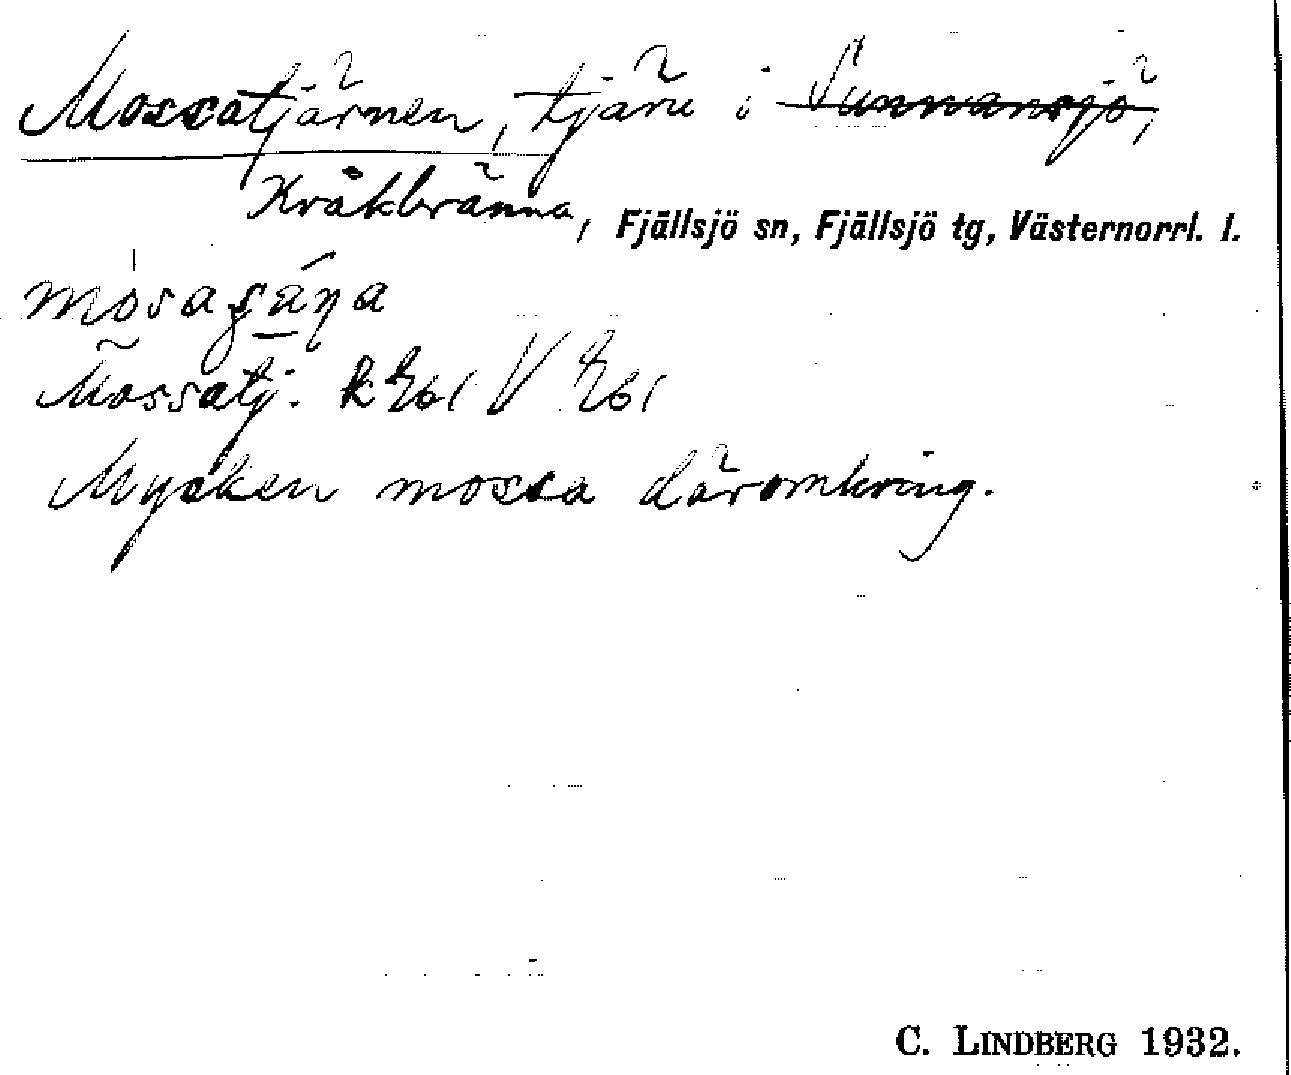 Mossatjärnen, tjärn i Sunnansjö,
Kråkbränna, Fjällsjö sn, Fjällsjö tg, Västernorrl. l.
Mossatj.
Mycken mossa däromkring.
C. LINDBERG 1932.